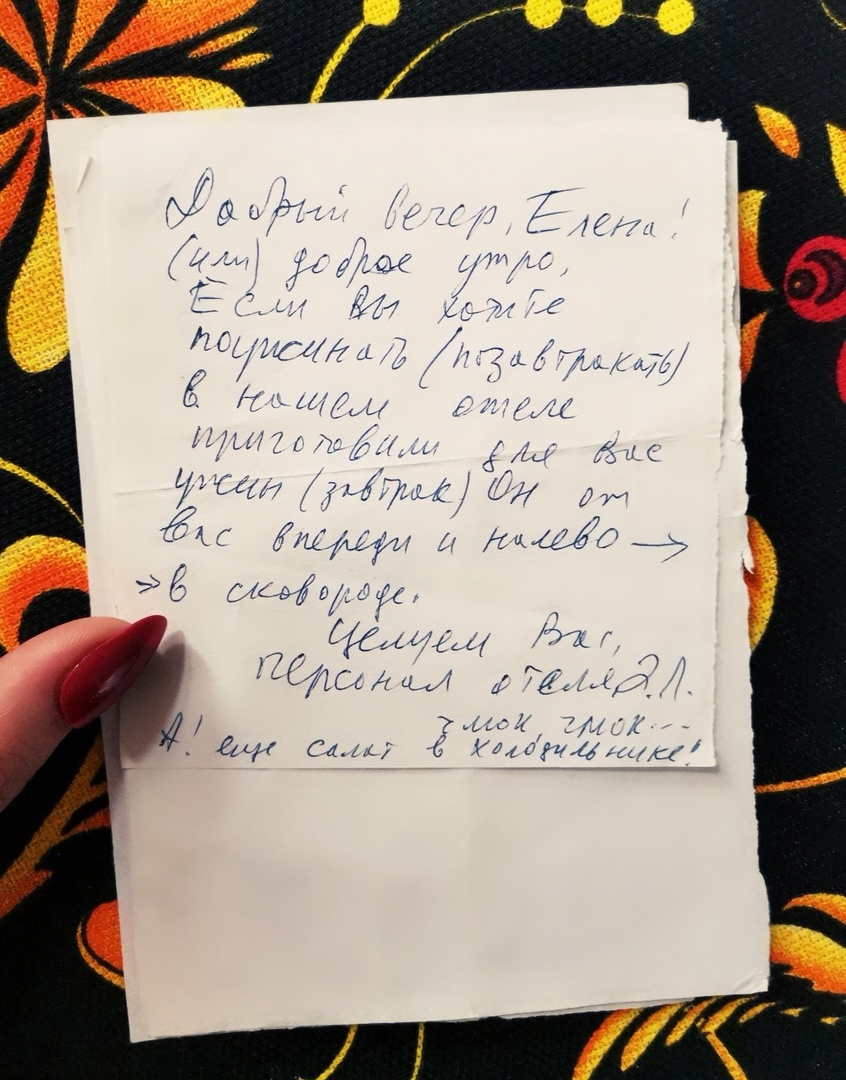 Добрый вечер, Елена!
(или) доброе утро,
Если Вы хотите
поужинать (позавтракать)
в нашем отеле
приготовили для Вас
ужин (завтрак) Он от
Вас впереди и налево →
→ в сковороде.
Целуем Вас,
персонал отеля Э.Л.
чмок чмок...
А! еще салат в холодильнике!